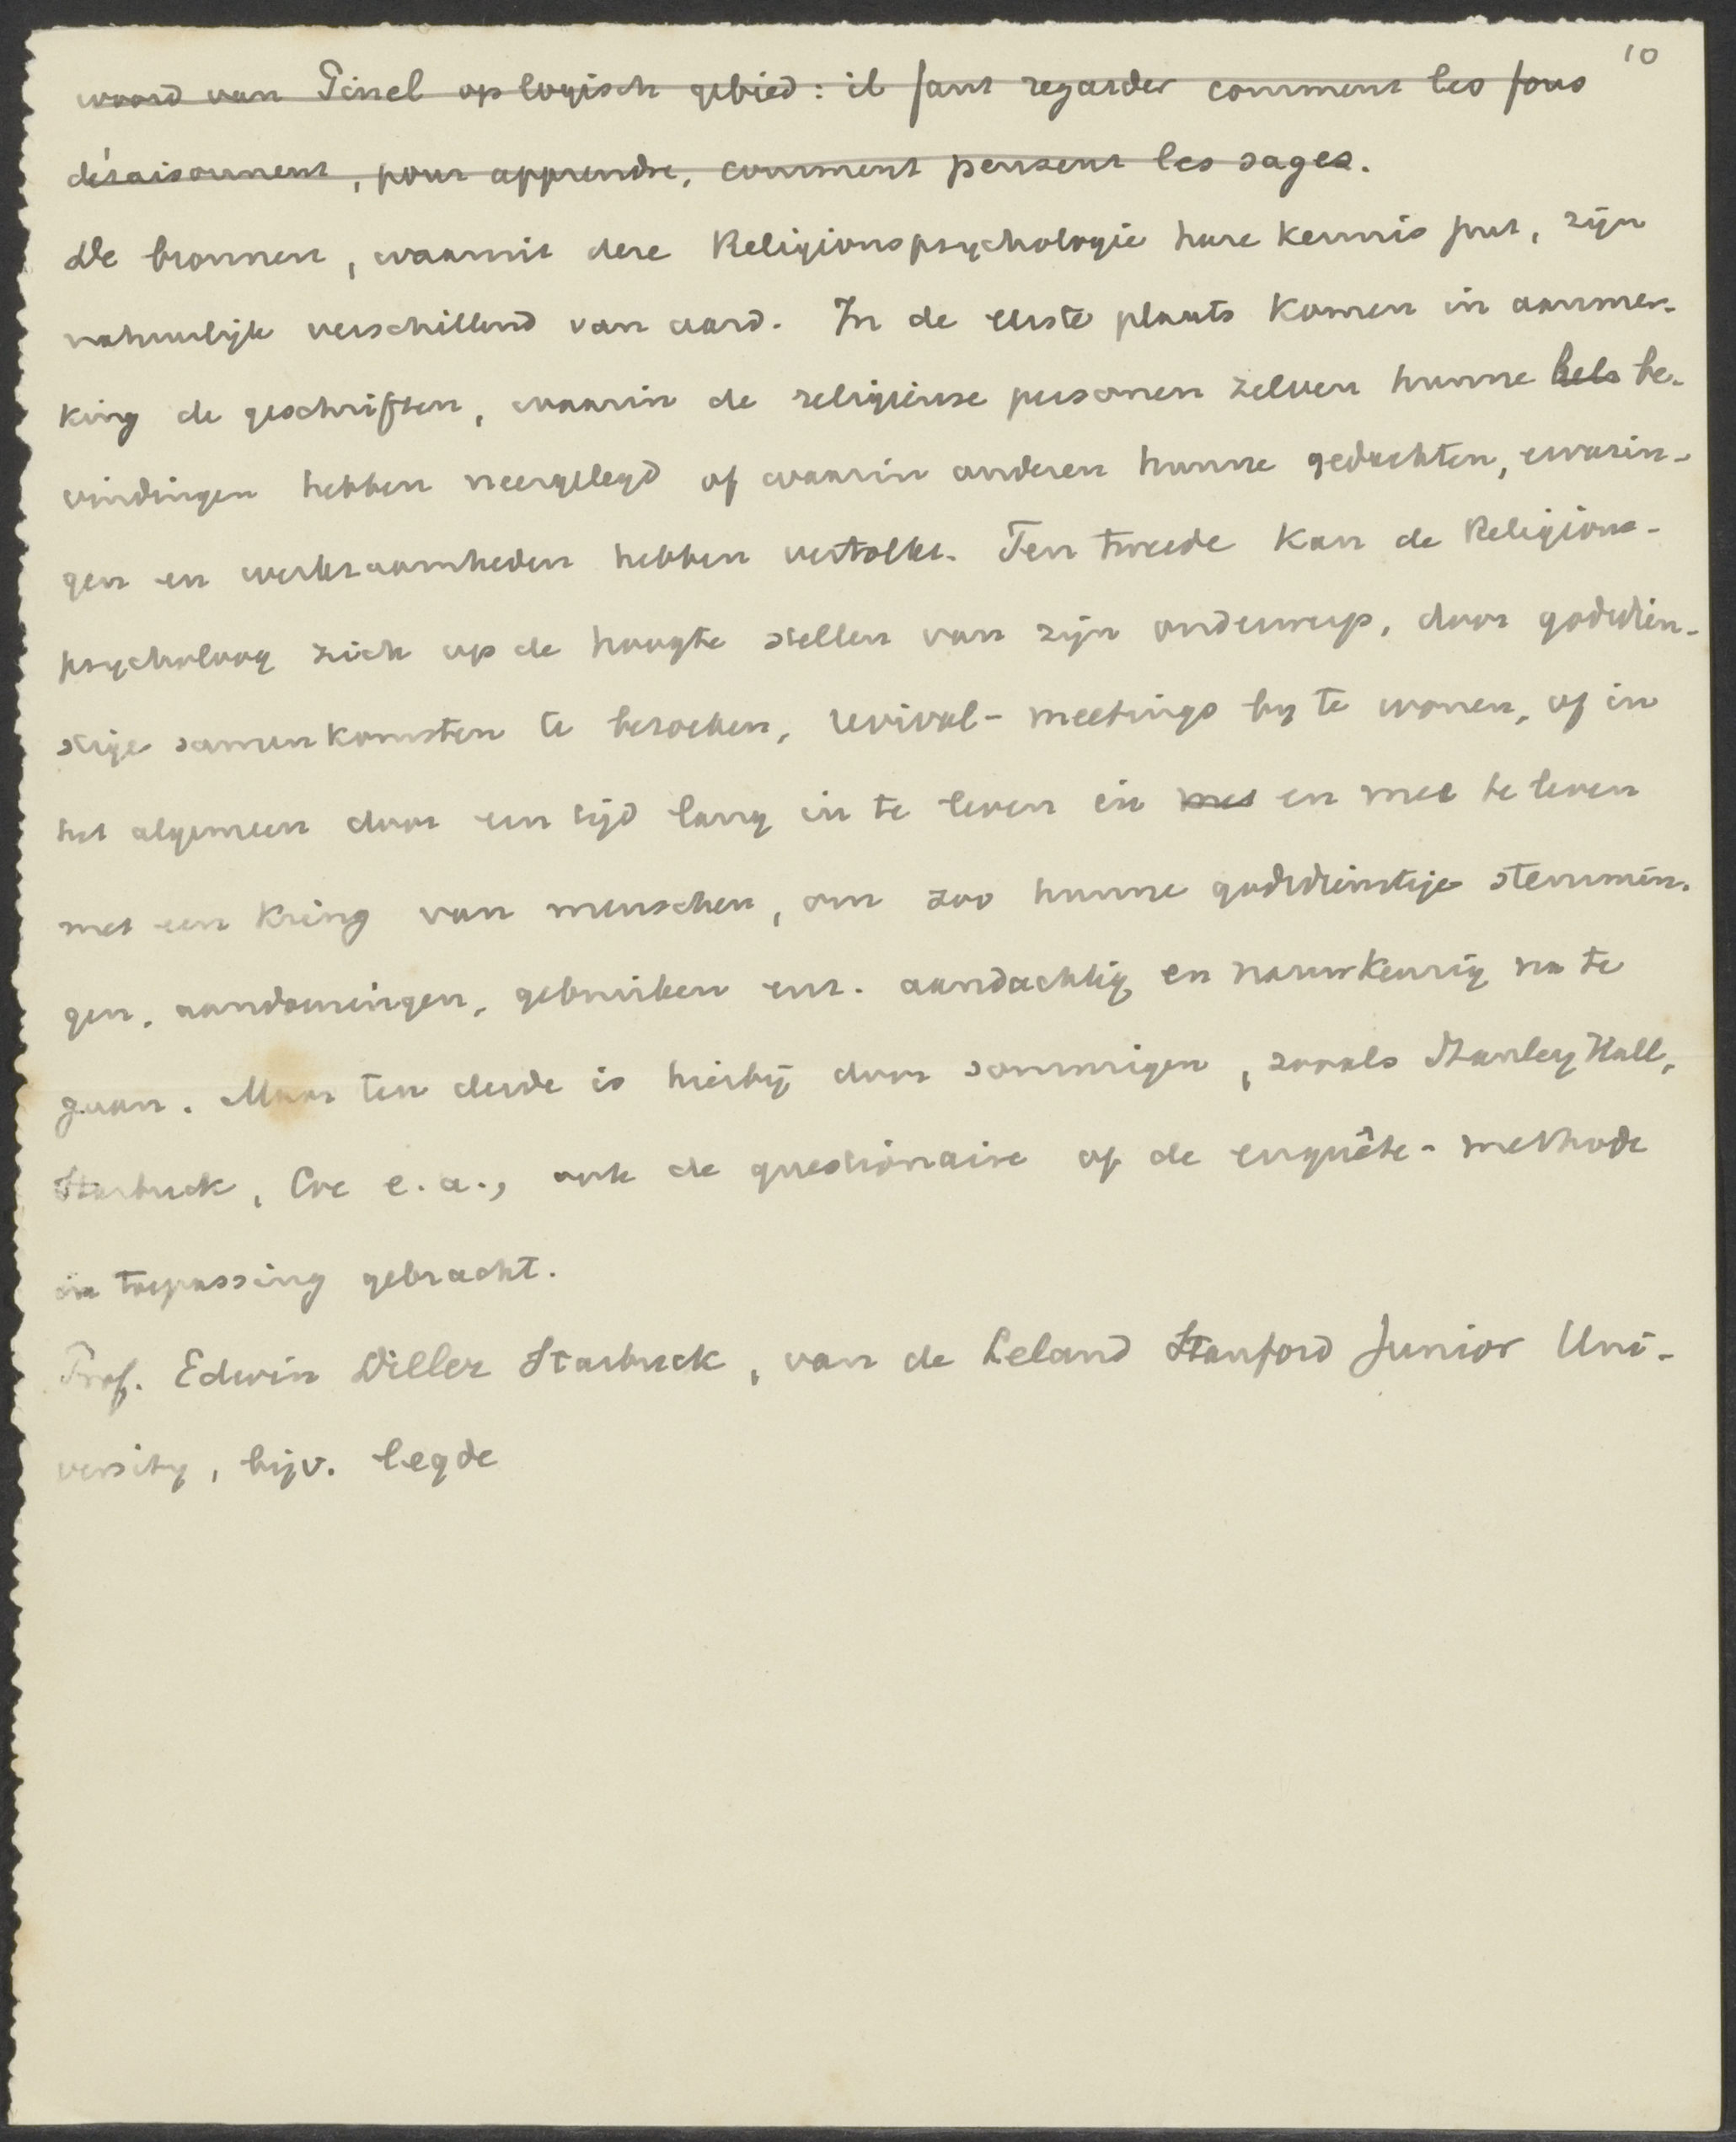 10
woord van Pinel op logisch gebied: il faut regarder comment les fous
déraisonnent, pour apprendre, comment pensent les sages.
De bronnen, waaruit deze Religionspsychologie hare kennis put, zijn
natuurlijk verschillend van aard. In de eerste plaats komen in aanmer-
king de geschriften, waarin de religieuse personen zelven hunne be-
vindingen hebben neergelegd of waarin anderen hunne gedachten, ervarin-
gen en werkzaamheden hebben vertolkt. Ten tweede kan de Religions-
psycholoog zich op de hoogte stellen van zijn onderwerp, door godsdien-
stige samenkomsten te bezoeken, revival-meetings by te wonen, of in
het algemeen door een tijd lang in te leven in met en mee te leven
met een kring van menschen, om zoo hunne godsdienstige stemmin-
gen, aandoeningen, gebruiken enz. aandachtig en nauwkeurig na te
gaan. Maar ten derde is hierbij door sommigen, zooals Stanley Hall,
Starbuck, Coe e.a., ook de questionaire of de enquête-methode
in toepassing gebracht.
Prof. Edwin Diller Starbuck, van de Leland Stanford Junior Uni-
versity, bijv. legde